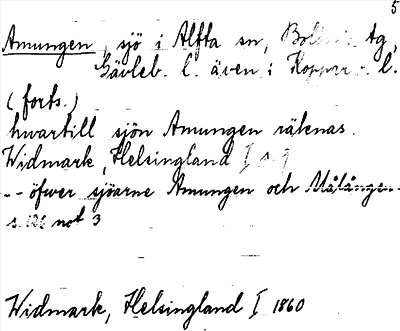 5
Amungen, sjö i Alfta sn, tg,
Gävleb. l. även i l.
(forts.)
hwartill sjön Amungen räknas.
Widmark, Helsingland I s. 9
-- öfwer sjöarne Amungen och Målången
s. 126 not 3
Widmark, Helsingland I 1860